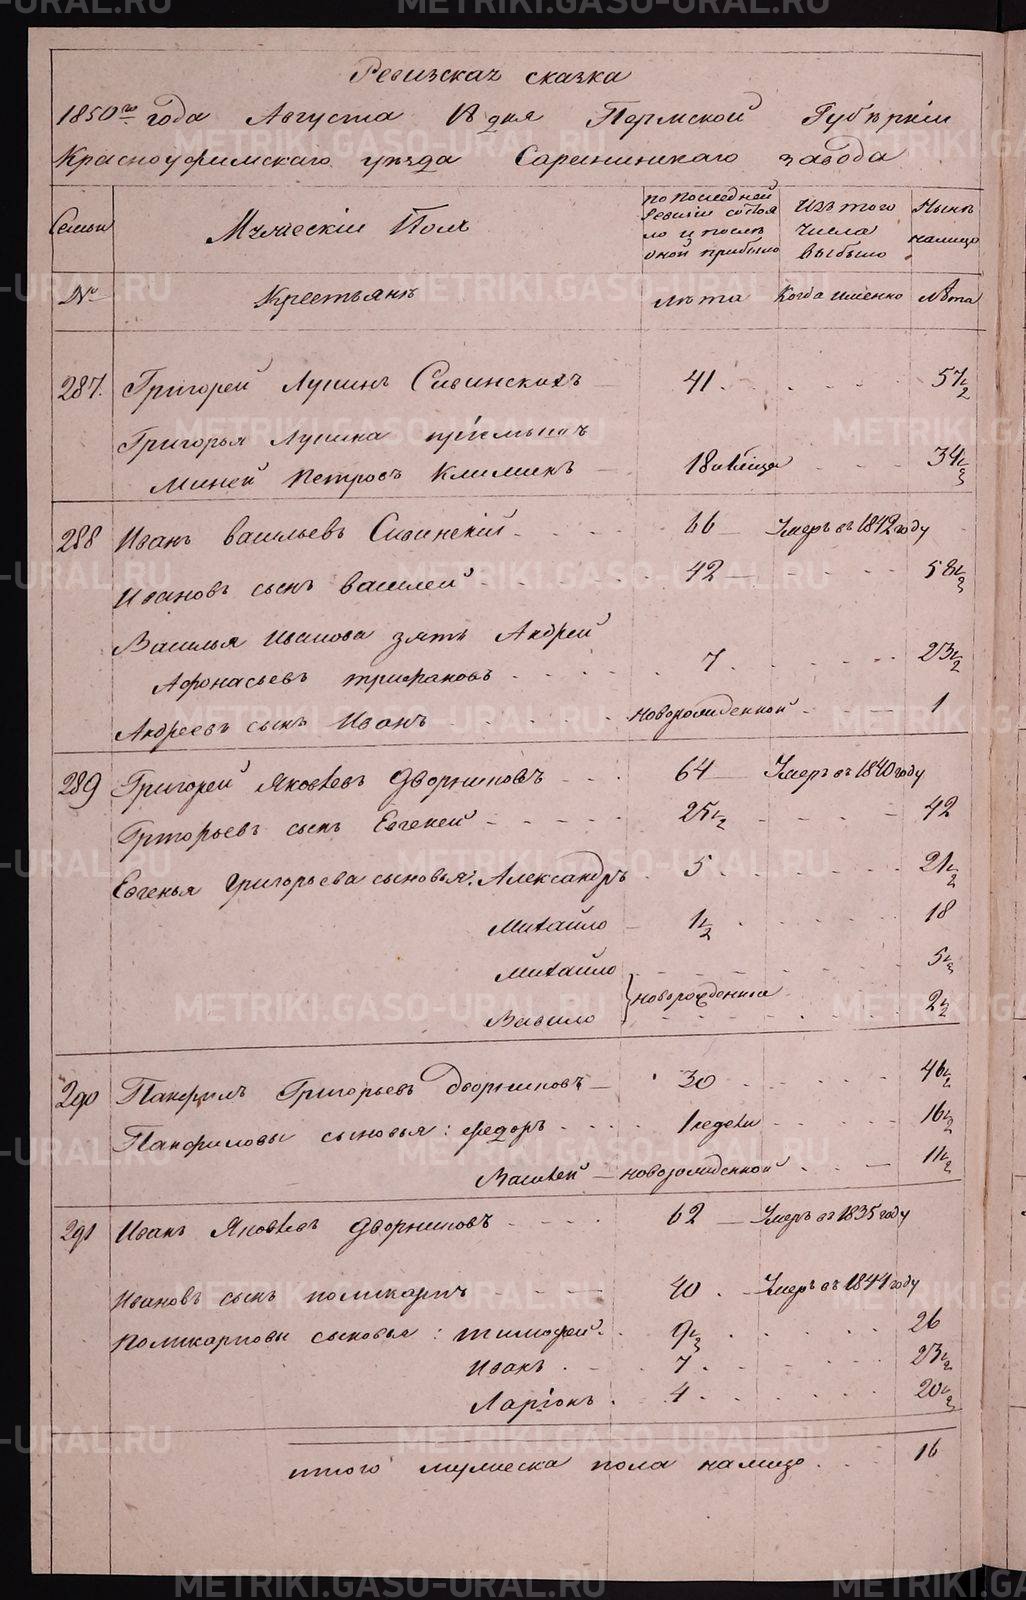 Ревизская сказка
1850го года Августа 18 дня Пермской Губернии
Красноуфимскаго уезда Саранинскаго завода
Семьи Мужеский Полъ по последней ревизии состояло и после оной прибыло Изъ того числа выбыло Ныне налицо
№ Крестьяне лета Когда именно лета
287. Григорей Лупинъ Сивинскихъ 41. 57 1/2
Григорья Лупина приемышъ
Миней Петровъ Климинъ 34 1/2
288 Иванъ Васильевъ Сивинский 66 Умеръ въ 1842 году
Ивановъ сынъ Василей 42 58 1/2
Василья Иванова зять Андрей
Афонасьевъ Трифановъ 7. 23 1/2
Андреевъ сынъ Иванъ новорожденной 1
289 Григорей Яковлевъ Дворниковъ 64 Умеръ въ 1840 году
Григорьевъ сынъ Евгеней 25 1/2 42
Евгенья Григорьева сыновья: Александръ 5 21 1/2
Михайло 1 1/2 18
Михайло 5 1/2
новорожденныя
Вавило 2 1/2
290 Панфилъ Григорьевъ Дворниковъ 30 46 1/2
Панфиловы сыновья: Федоръ 1 недели 16 1/2
Василей новорожденной 11 1/2
291 Иванъ Яковлевъ Дворниковъ 62 Умеръ въ 1835 году
Ивановъ сынъ Поликарпъ 40 Умеръ въ 1844 году
Поликарповы сыновья: Тимофей 9 1/2 26
Иванъ 7 23 1/2
Ларіонъ 4 20 1/2
итого мужеска пола налицо 16
METRIKI.GASO-URAL.RU